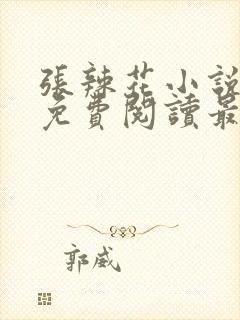 張辣花小說
免費閱讀最
郭威